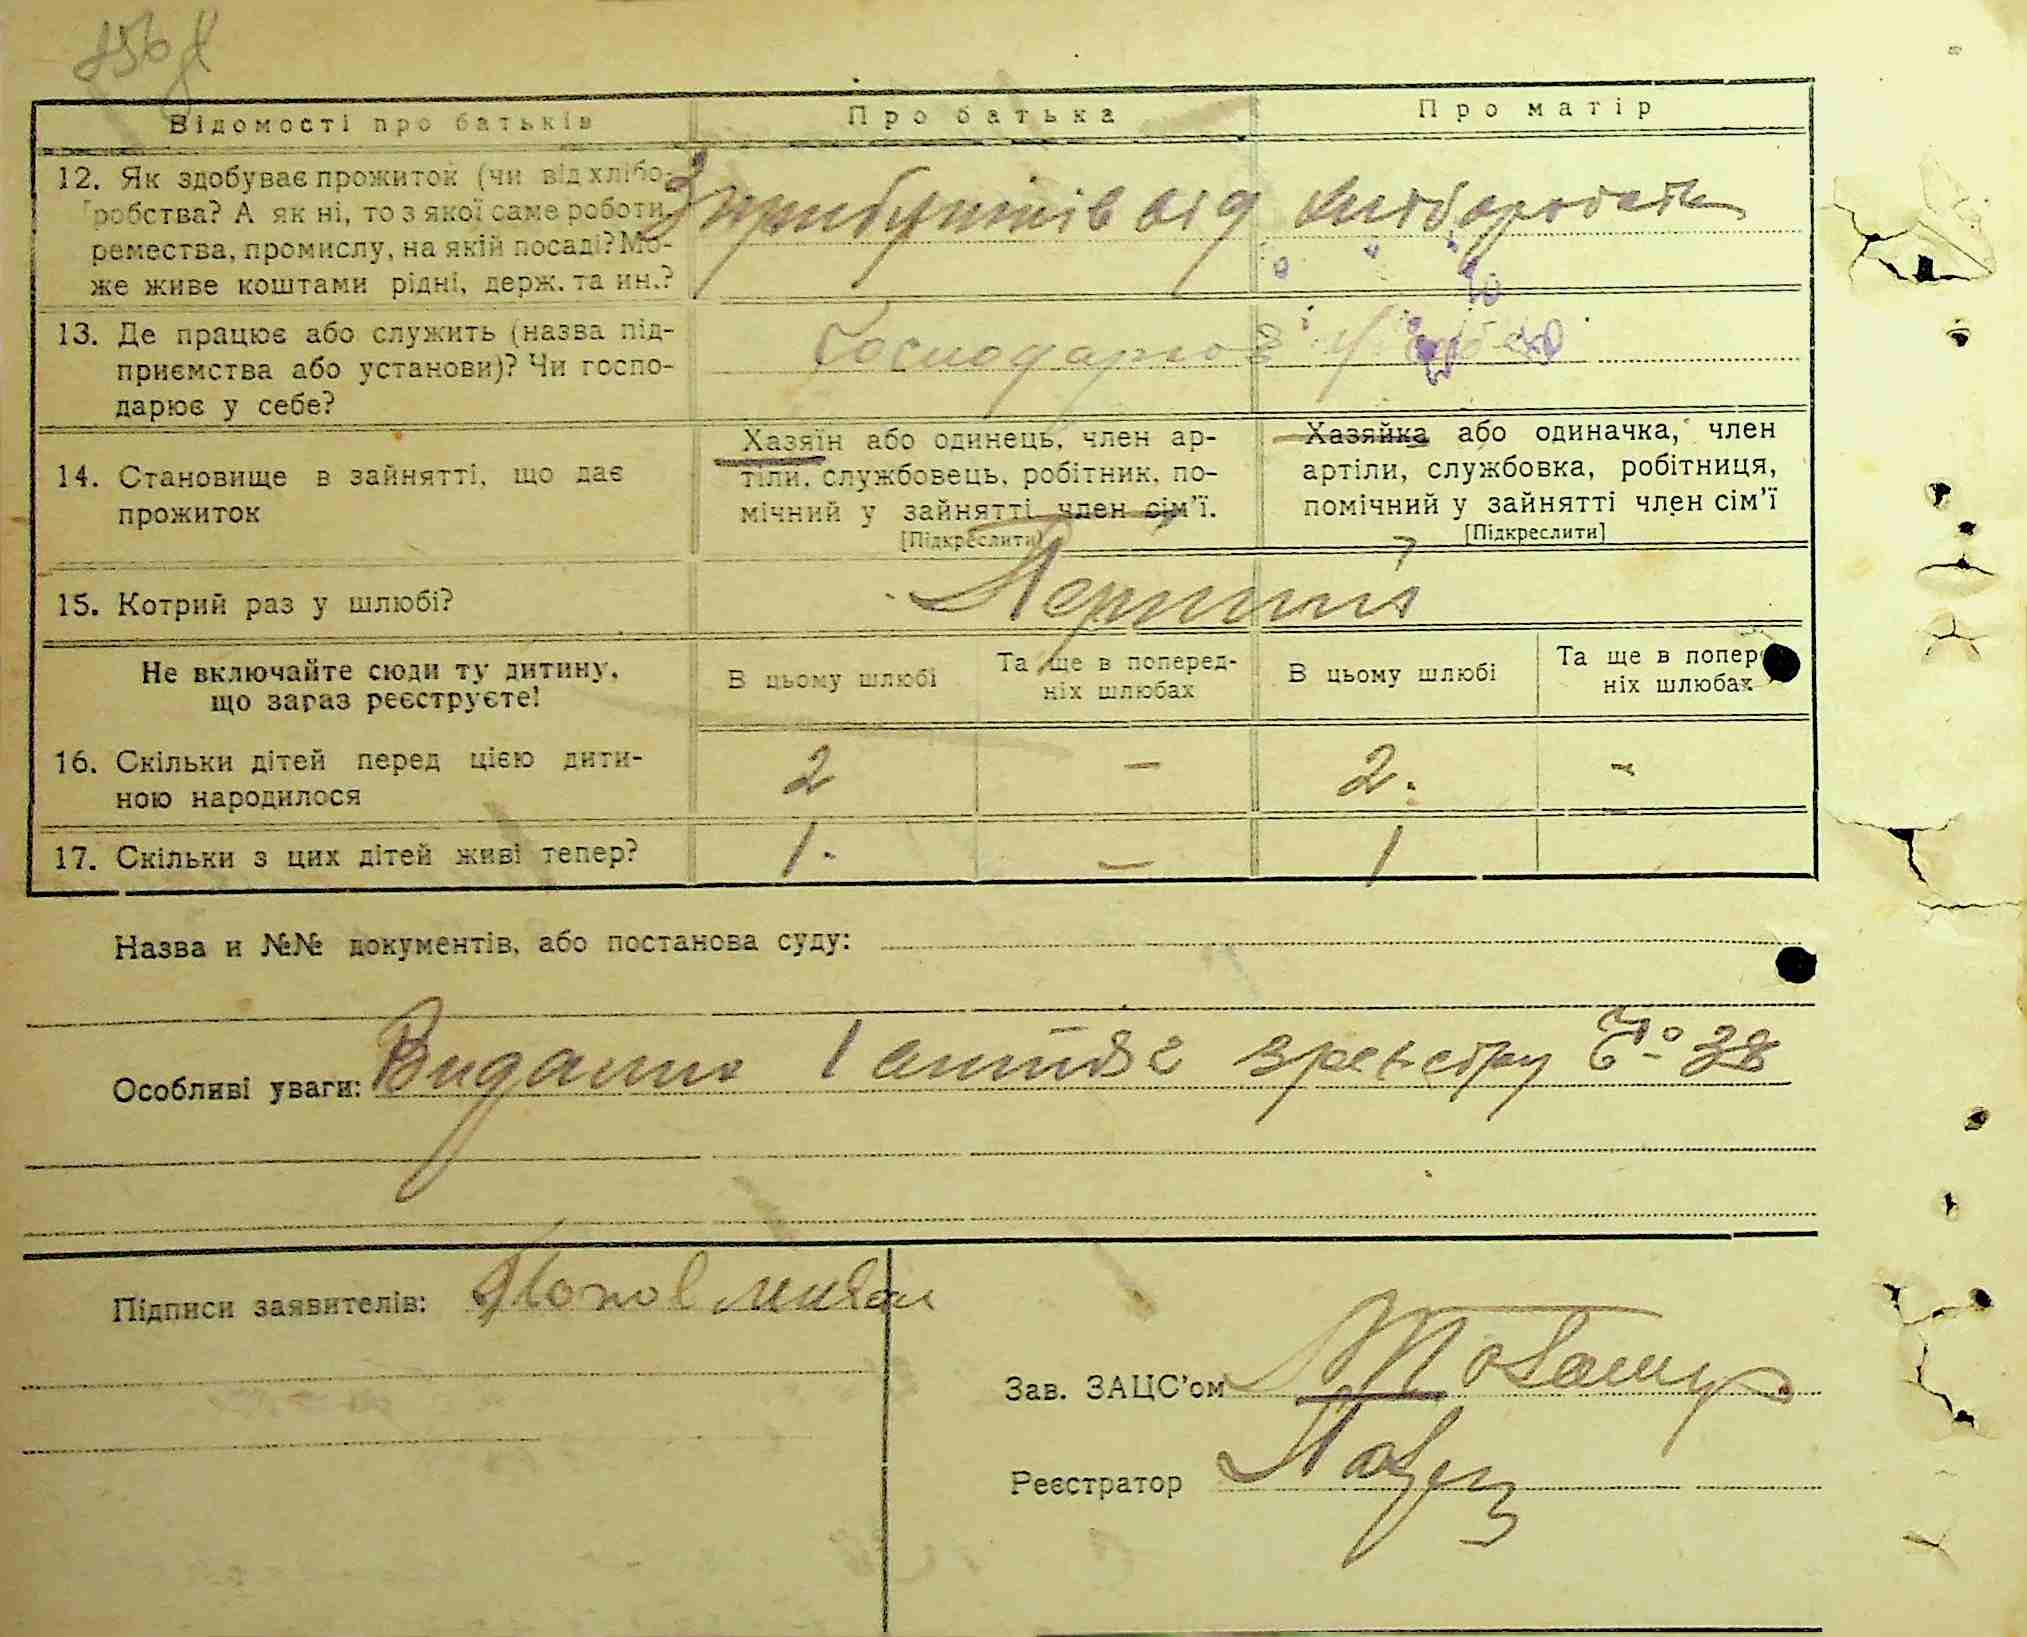 Відомості про батьків
Про батька
Про матір
12. Як здобуває прожиток (чи від хлібо-
робства? А як ні, то з якої саме роботи,
ремества, промислу, на якій посаді? Мо-
же живе коштами рідні, держ. та ин.?
З прибутків від
13. Де працює або служить (назва під-
приємства або установи)? Чи госпо-
дарює у себе?
Господарює
14. Становище в зайнятті, що дає
прожиток
Хазяїн або одинець, член ар-
тіли, службовець, робітник, по-
мічний у зайнятті член сім'ї.
[Підкреслити]
Хазяйка або одиначка, член
артіли, службовка, робітниця,
помічний у зайнятті член сім'ї
[Підкреслити]
15. Котрий раз у шлюбі?
Перший
Не включайте сюди ту дитину,
що зараз реєструєте!
В цьому шлюбі
Та ще в поперед-
ніх шлюбах
В цьому шлюбі
Та ще в попер
ніх шлюбах
16. Скільки дітей перед цією дити-
ною народилося
2 - 2. -
17. Скільки з цих дітей живі тепер?
1. - 1
Назва и №№ документів, або постанова суду:
Особливі уваги: Видано 1 з реєстру № 38
Підписи заявителів:
Зав. ЗАЦС'ом
Реєстратор